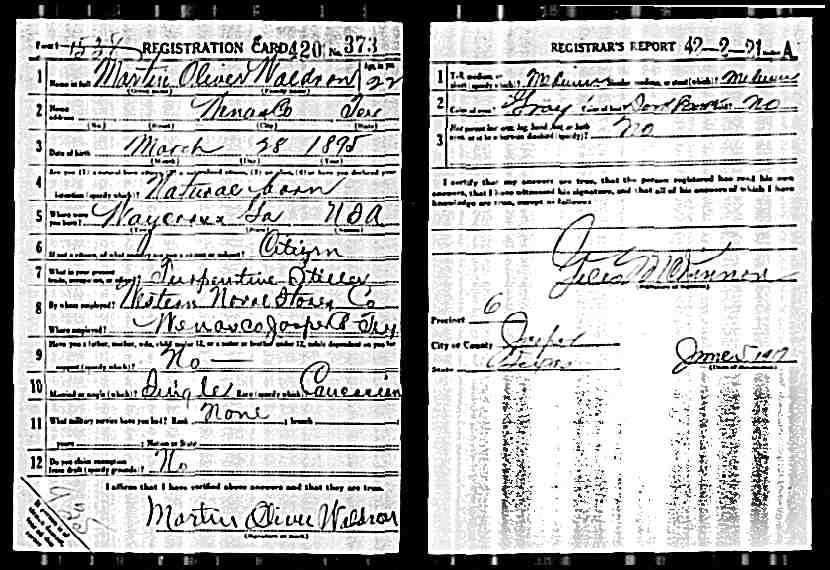 Form 1 1537 REGISTRATION CARD 420 No. 373
1 Name in full Martin Oliver Waldron Age, in yrs 22
(Given name) (Family name)
2 Home address Wenasco Tex
(No.) (Street) (City) (State)
3 Date of birth March 28 1895
(Month) (Day) (Year)
4 Are you (1) a natural-born citizen, (2) a naturalized citizen, (3) an alien, (4) or have you declared your
intention (specify which)? Natural born
5 Where were you born? Waycross Ga USA
(Town) (State) (Nation)
6 If not a citizen, of what country are you a citizen or subject? Citizen
7 What is your present trade, occupation, or office? Turpentine Stiller
8 By whom employed? Western Naval Stores Co
Where employed? Wenasco Jasper Tex
9 Have you a father, mother, wife, child under 12, or a sister or brother under 12, solely dependent on you for
support (specify which)? No
10 Married or single (which)? Single Race (specify which)? Caucasian
11 What military service have you had? Rank None ; branch
years ; Nation or State
12 Do you claim exemption from draft (specify grounds)? No
I affirm that I have verified above answers and that they are true.
Martin Oliver Waldron
(Signature or mark)
REGISTRAR'S REPORT 42-2-21-A
1 Tall, medium, or short (specify which)? Medium Slender, medium, or stout (which)? Medium
2 Color of eyes? Gray Color of hair? Dark Brown Bald? No
3 Has person lost arm, leg, hand, foot, or both eyes, or is he otherwise disabled (specify)? No
I certify that my answers are true, that the person registered has read his own
answers, that I have witnessed his signature, and that all of his answers of which I have
knowledge are true, except as follows:
McKinnon
(Signature of registrar)
Precinct 6
City or County Jasper
State Texas June 5 1917
(Date of registration)